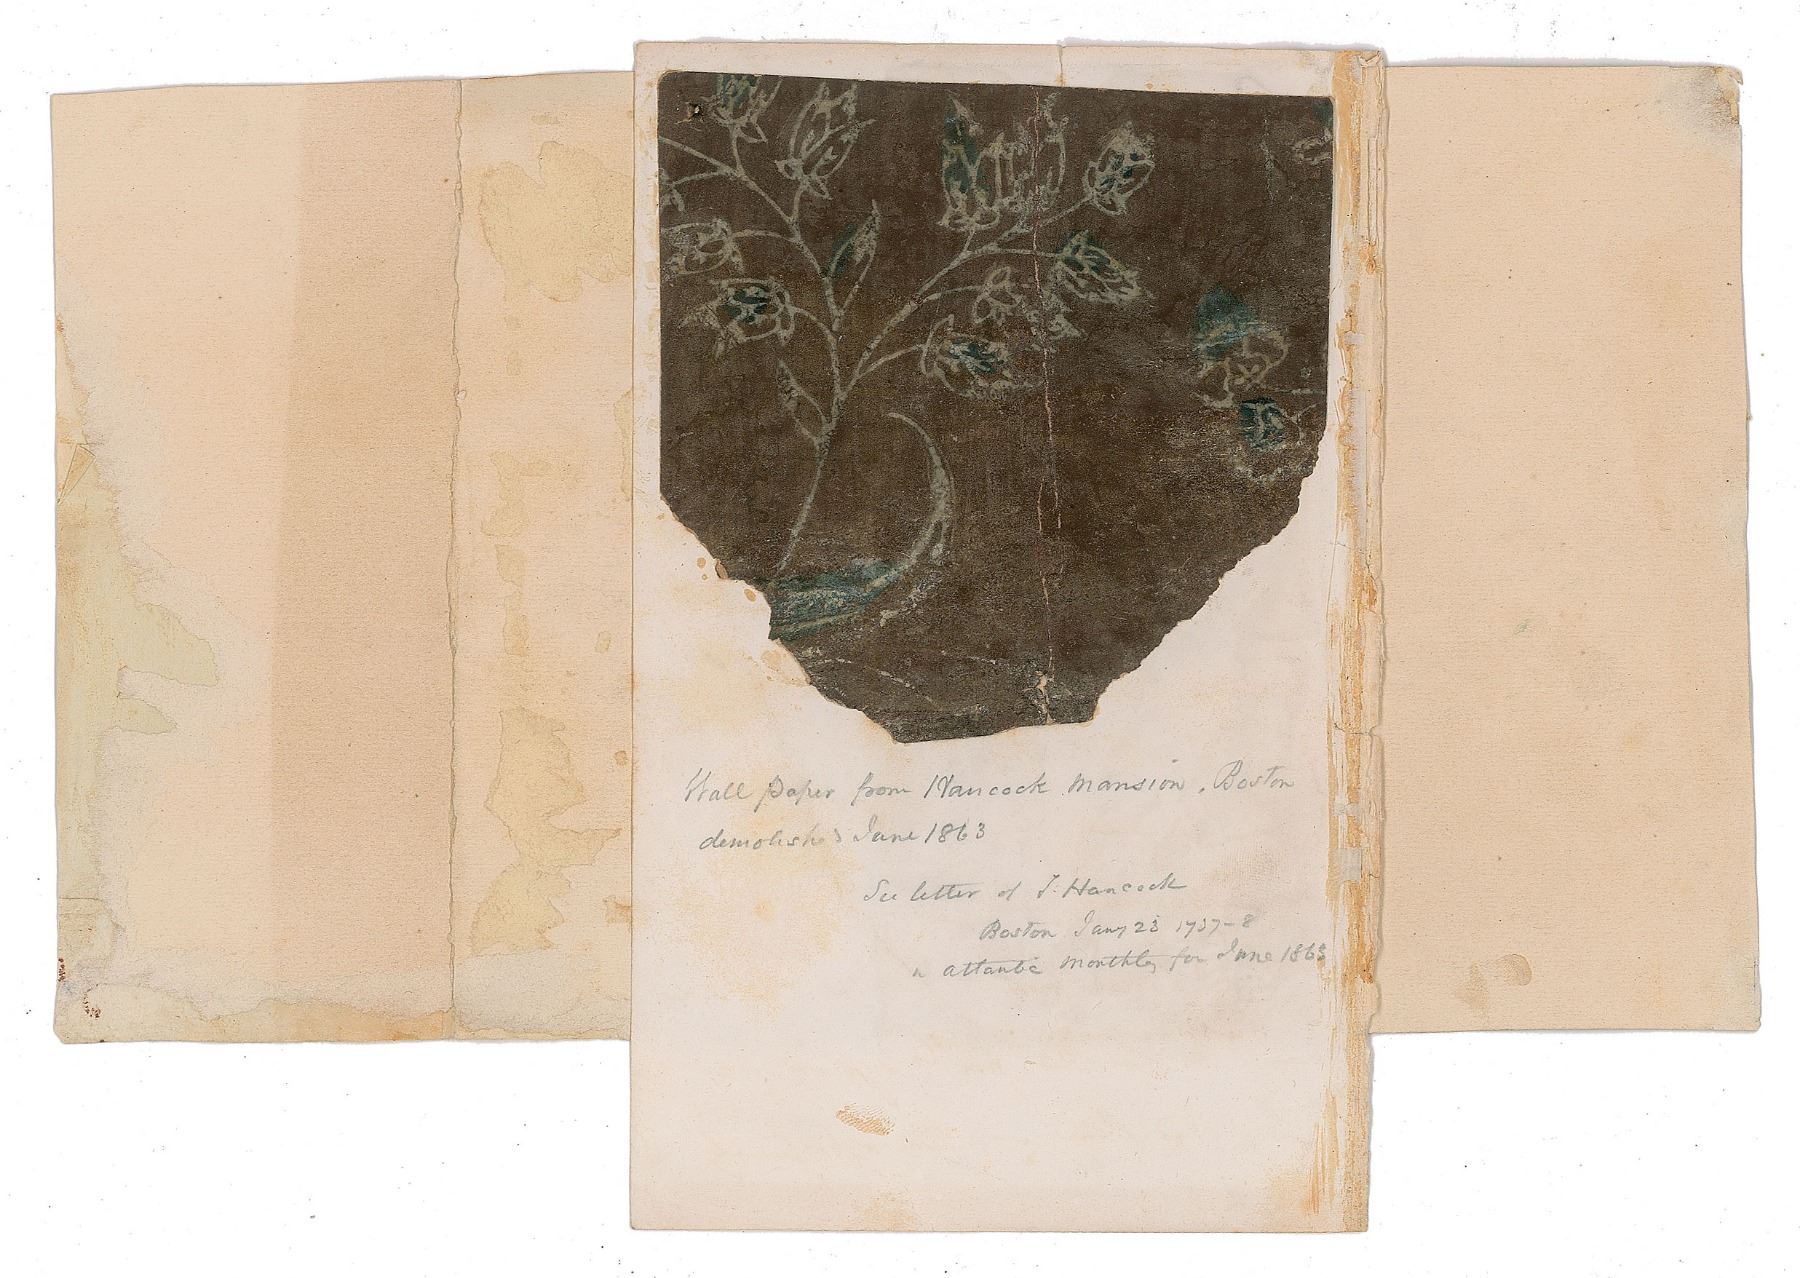 Wall paper from Hancock Mansion, Boston
demolished June 1863
See letter of T. Hancock
Boston Jany 23 1737-8
in Atlantic Monthly for June 1863